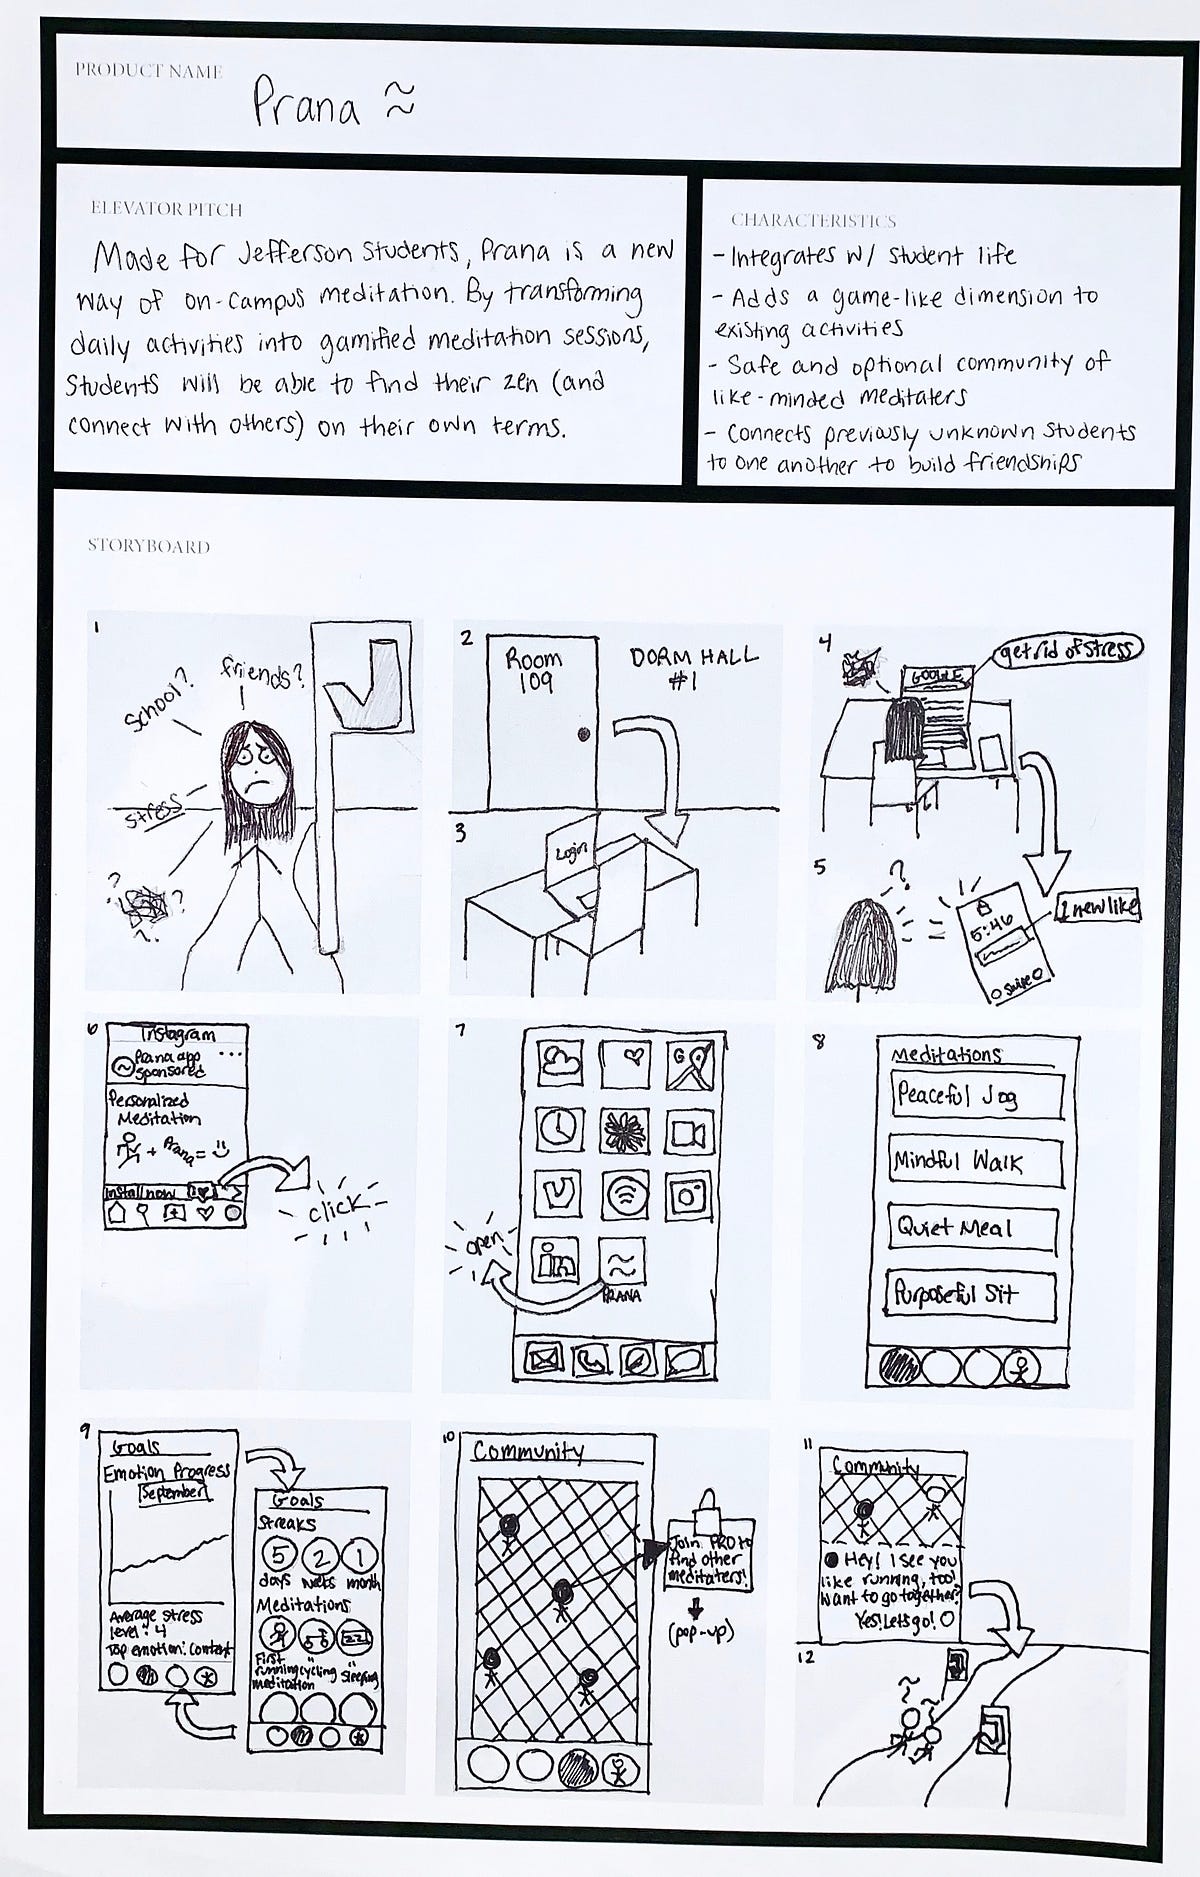 PRODUCT NAME
Prana ≈
ELEVATOR PITCH
Made for Jefferson Students, Prana is a new
way of on-campus meditation. By transforming
daily activities into gamified meditation sessions,
students will be able to find their zen (and
connect with others) on their own terms.
CHARACTERISTICS
- Integrates w/ student life
- Adds a game-like dimension to
existing activities
- Safe and optional community of
like-minded meditaters
- Connects previously unknown students
to one another to build friendships
STORYBOARD
1
school?
friends?
stress
? ? ?
J
2
Room
109
DORM HALL
#1
3
Login
4
GOOGLE
get rid of stress
5
?
5:46
1 new like
swipe
6
Instagram
Prana app
sponsored
...
Personalized
Meditation
+ Prana =
Install now
click
7
G
in
PRANA
open
8
Meditations
Peaceful Jog
Mindful Walk
Quiet Meal
Purposeful Sit
9
Goals
Emotion Progress
September
Average stress
level: 4
Top emotion: content
Goals
Streaks
5 2 1
days weeks month
Meditations
First
running
meditation
" cycling
" sleeping
10
Community
Join PRO to
find other
meditaters!
(pop-up)
11
Community
Hey! I see you
like running, too!
Want to go together?
Yes! Lets go!
12